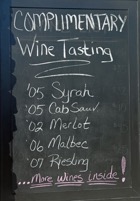 COMPLIMENTARY
Wine Tasting
'05 Syrah
'05 Cab Sauv
'02 Merlot
'06 Malbec
'07 Riesling
...More wines inside!